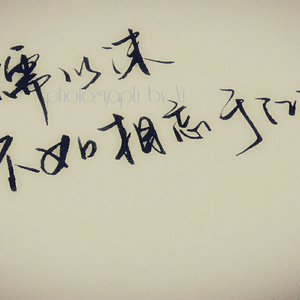 濡以沫
photograph by
不如相忘于江